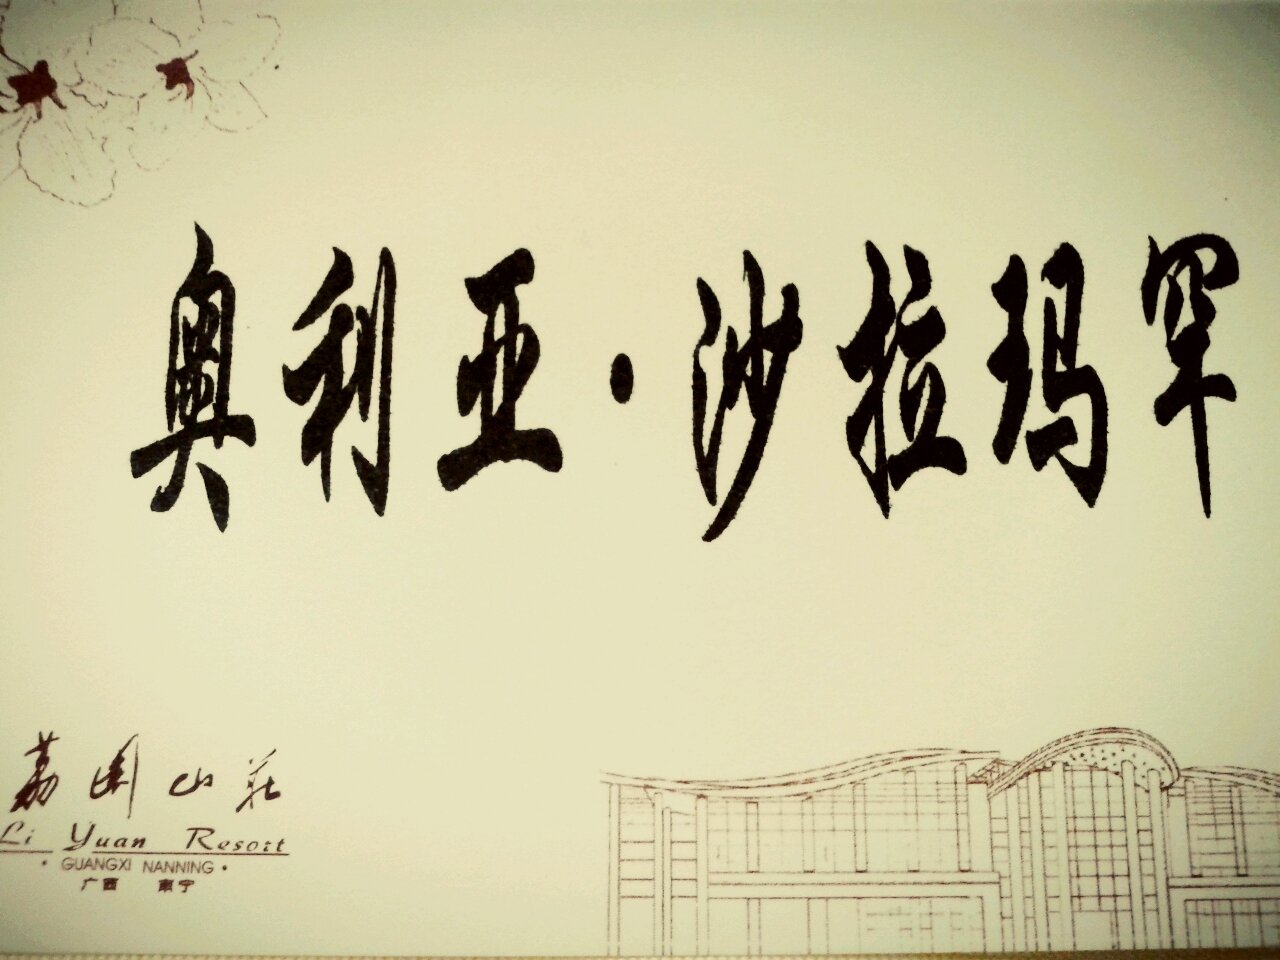 奥利亚·沙拉玛罕
荔园山庄
Li Yuan Resort
·GUANGXI NANNING·
广西 南宁